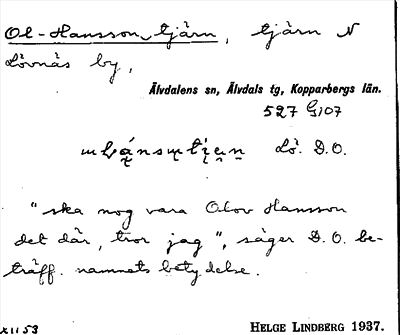 Ol-Hansson tjärn, tjärn N
Lövnäs by,
Älvdalens sn, Älvdals tg, Kopparbergs län.
527 G107
Lö. D.O.
"ska nog vara Olov Hansson
det där, tror jag", säger D.O. be-
träff. namnets betydelse.
XII 53 HELGE LINDBERG 1937.